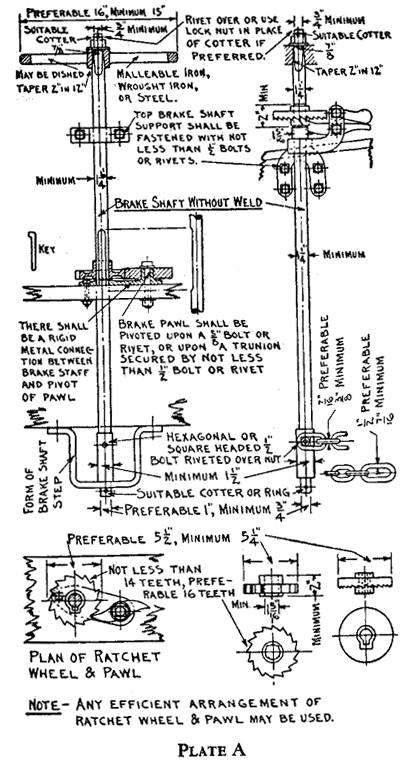 PREFERABLE 16", MINIMUM 15"
SUITABLE
COTTER
3/4" MINIMUM
7/8"
RIVET OVER OR USE
LOCK NUT IN PLACE
OF COTTER IF
PREFERRED.
3/4" MINIMUM
SUITABLE COTTER
7/8"
TAPER 2" IN 12"
MAY BE DISHED
TAPER 2" IN 12"
MALLEABLE IRON,
WROUGHT IRON,
OR STEEL.
2" MIN
TOP BRAKE SHAFT
SUPPORT SHALL BE
FASTENED WITH NOT
LESS THAN 1/2" BOLTS
OR RIVETS.
MINIMUM
1 1/4"
BRAKE SHAFT WITHOUT WELD
KEY
1 1/4"
MINIMUM
THERE SHALL
BE A RIGID
METAL CONNEC-
TION BETWEEN
BRAKE STAFF
AND PIVOT
OF PAWL
BRAKE PAWL SHALL BE
PIVOTED UPON A 5/8" BOLT OR
RIVET, OR UPON A TRUNION
SECURED BY NOT LESS
THAN 1/2" BOLT OR RIVET
7/16" PREFERABLE
3/8" MINIMUM
1/2" PREFERABLE
7/16" MINIMUM
FORM OF
BRAKE SHAFT
STEP
HEXAGONAL OR
SQUARE HEADED 1/2"
BOLT RIVETED OVER NUT
MINIMUM 1 1/2"
SUITABLE COTTER OR RING
PREFERABLE 1", MINIMUM 3/4"
PREFERABLE 5 1/2", MINIMUM 5 1/4"
NOT LESS THAN
14 TEETH, PREFE-
RABLE 16 TEETH
MIN.
2"
MINIMUM
PLAN OF RATCHET
WHEEL & PAWL
NOTE - ANY EFFICIENT ARRANGEMENT OF
RATCHET WHEEL & PAWL MAY BE USED.
PLATE A